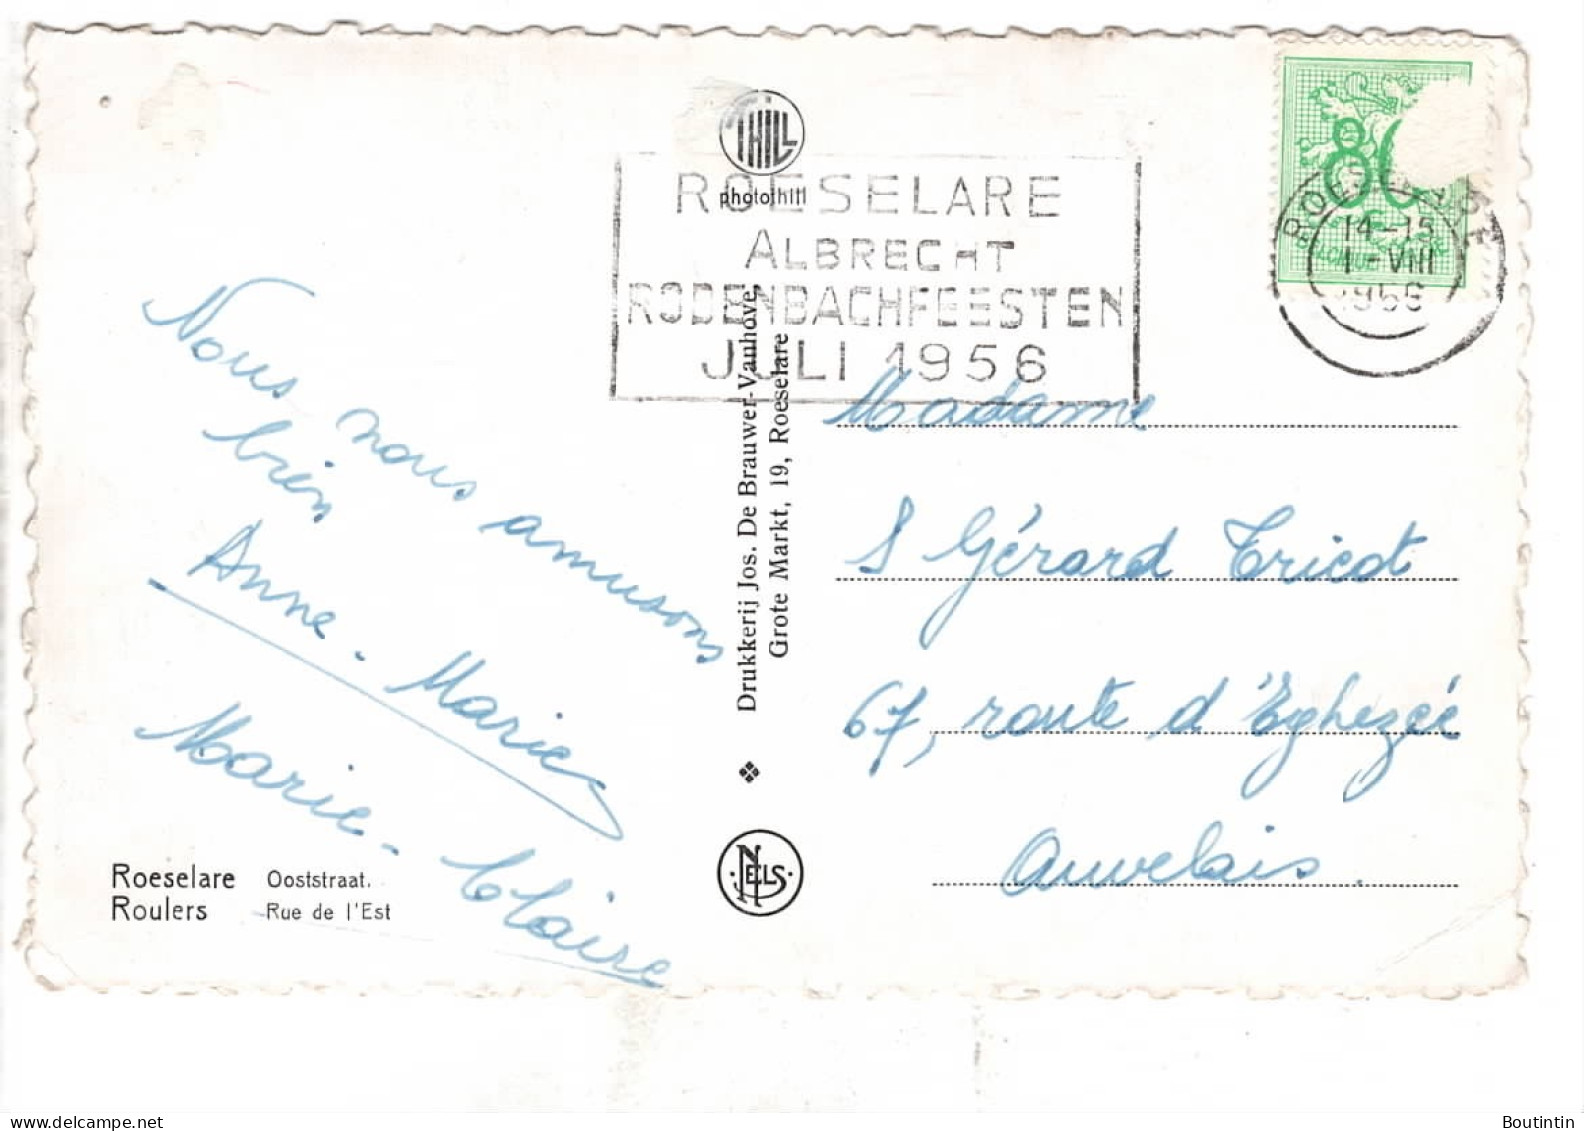 THILL
photothill
ROESELARE
ALBRECHT
RODENBACHFEESTEN
JULI 1956
80
ROESELARE
14-15
1-VIII
1956
Nous nous amusons
bien
Anne-Marie
Marie-Claire
Roeselare Ooststraat.
Roulers Rue de l'Est
Drukkerij Jos. De Brauwer-Vanhove,
Grote Markt, 19, Roeselare
NELS
Madame
S Gérard Tricot
67, route d'Eghezée
Auvelais.
Boutintin